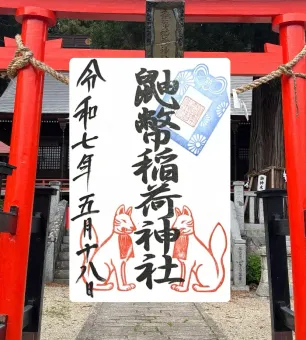 鼬幣稲荷神社
令和七年五月十八日